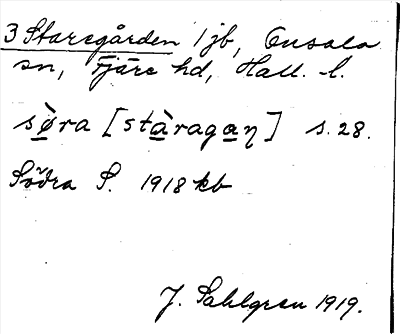 3 Staregården 1 jb, Onsala
sn, Fjäre hd, Hall. l.
sø̀ra [stàragaŋ] s. 28.
Södra S. 1918 kb
J. Sahlgren 1919.